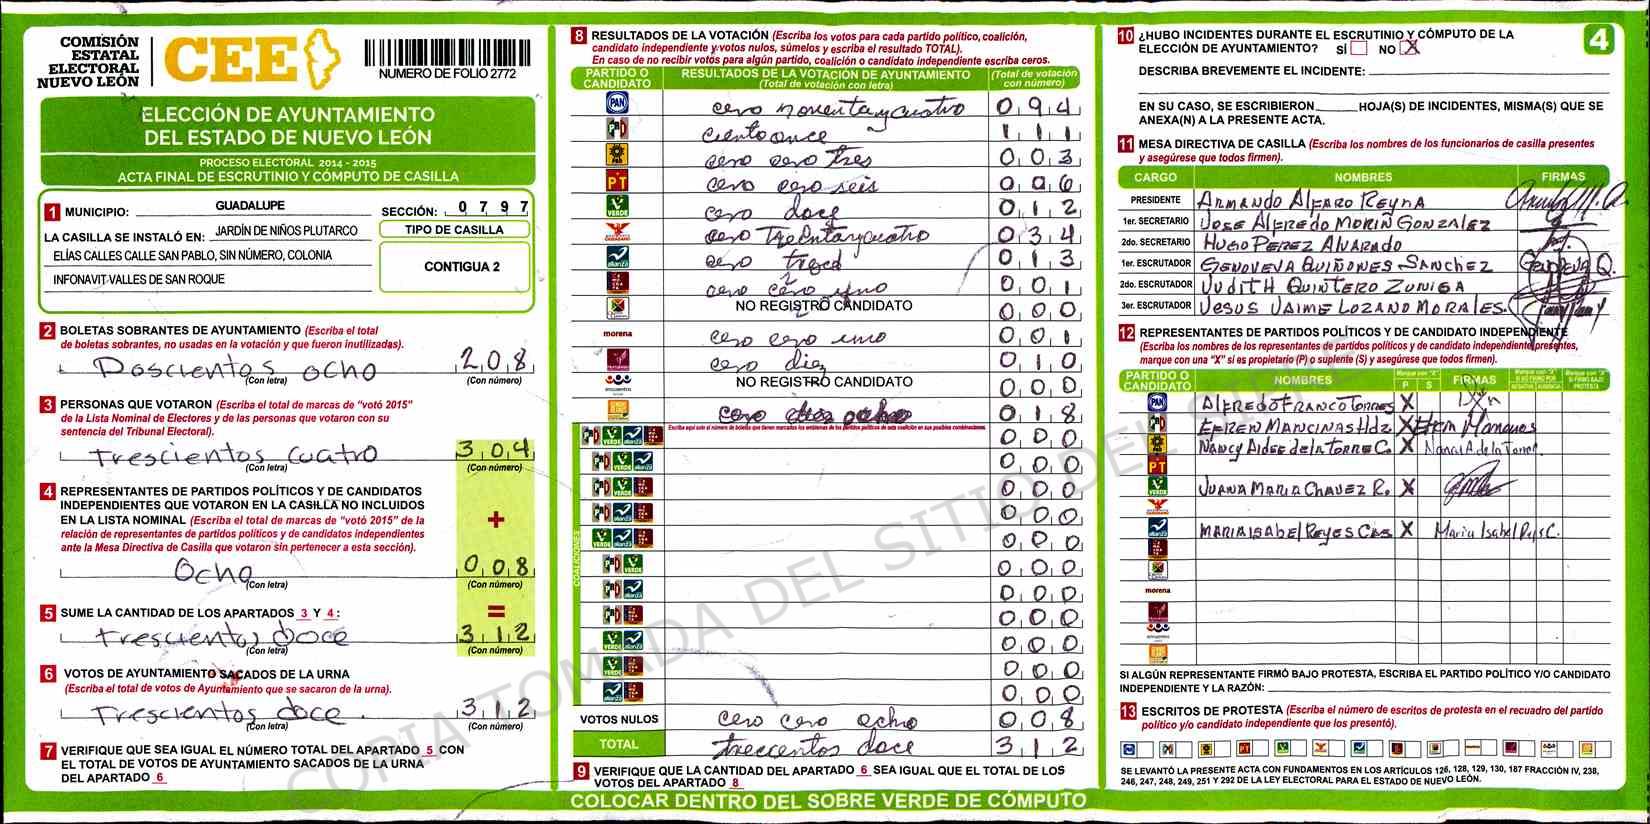 COMISIÓN
ESTATAL
ELECTORAL
NUEVO LEÓN
CEE
NUMERO DE FOLIO 2772
ELECCIÓN DE AYUNTAMIENTO
DEL ESTADO DE NUEVO LEÓN
PROCESO ELECTORAL 2014 - 2015
ACTA FINAL DE ESCRUTINIO Y CÓMPUTO DE CASILLA
1 MUNICIPIO: GUADALUPE SECCIÓN: 0 7 9 7
LA CASILLA SE INSTALÓ EN: JARDÍN DE NIÑOS PLUTARCO
ELÍAS CALLES CALLE SAN PABLO, SIN NÚMERO, COLONIA
INFONAVIT VALLES DE SAN ROQUE
TIPO DE CASILLA
CONTIGUA 2
2 BOLETAS SOBRANTES DE AYUNTAMIENTO (Escriba el total
de boletas sobrantes, no usadas en la votación y que fueron inutilizadas).
Doscientos ocho 2 0 8
(Con letra) (Con número)
3 PERSONAS QUE VOTARON (Escriba el total de marcas de “votó 2015”
de la Lista Nominal de Electores y de las personas que votaron con su
sentencia del Tribunal Electoral).
Trescientos cuatro 3 0 4
(Con letra) (Con número)
4 REPRESENTANTES DE PARTIDOS POLÍTICOS Y DE CANDIDATOS
INDEPENDIENTES QUE VOTARON EN LA CASILLA NO INCLUIDOS
EN LA LISTA NOMINAL (Escriba el total de marcas de “votó 2015” de la
relación de representantes de partidos políticos y de candidatos independientes
ante la Mesa Directiva de Casilla que votaron sin pertenecer a esta sección).
+
Ocho 0 0 8
(Con letra) (Con número)
5 SUME LA CANTIDAD DE LOS APARTADOS 3 Y 4: =
Trescientos doce 3 1 2
(Con letra) (Con número)
6 VOTOS DE AYUNTAMIENTO SACADOS DE LA URNA
(Escriba el total de votos de Ayuntamiento que se sacaron de la urna).
Trescientos doce. 3 1 2
(Con letra) (Con número)
7 VERIFIQUE QUE SEA IGUAL EL NÚMERO TOTAL DEL APARTADO 5 CON
EL TOTAL DE VOTOS DE AYUNTAMIENTO SACADOS DE LA URNA
DEL APARTADO 6
8 RESULTADOS DE LA VOTACIÓN (Escriba los votos para cada partido político, coalición,
candidato independiente y votos nulos, súmelos y escriba el resultado TOTAL).
En caso de no recibir votos para algún partido, coalición o candidato independiente escriba ceros.
PARTIDO O CANDIDATO RESULTADOS DE LA VOTACIÓN DE AYUNTAMIENTO (Total de votación con letra) (Total de votación con número)
PAN cero noventa y cuatro 0 9 4
PRI ciento once 1 1 1
PRD cero cero tres 0 0 3
PT cero cero seis 0 0 6
VERDE cero doce 0 1 2
cero Treinta y cuatro 0 3 4
alianza cero trece 0 1 3
cero cero uno 0 0 1
NO REGISTRÓ CANDIDATO 0 0 0
morena cero cero uno 0 0 1
cero diez 0 1 0
NO REGISTRÓ CANDIDATO 0 0 0
cero diez ocho 0 1 8
Escriba aquí solo el número de boletas que tienen marcados los emblemas de los partidos políticos de esta coalición en sus posibles combinaciones.
COALICIONES
0 0 0
0 0 0
0 0 0
0 0 0
0 0 0
0 0 0
0 0 0
0 0 0
0 0 0
0 0 0
0 0 0
VOTOS NULOS cero cero ocho 0 0 8
TOTAL treccentos doce 3 1 2
9 VERIFIQUE QUE LA CANTIDAD DEL APARTADO 6 SEA IGUAL QUE EL TOTAL DE LOS
VOTOS DEL APARTADO 8
COLOCAR DENTRO DEL SOBRE VERDE DE CÓMPUTO
10 ¿HUBO INCIDENTES DURANTE EL ESCRUTINIO Y CÓMPUTO DE LA
ELECCIÓN DE AYUNTAMIENTO? SÍ NO X
4
DESCRIBA BREVEMENTE EL INCIDENTE:
EN SU CASO, SE ESCRIBIERON HOJA(S) DE INCIDENTES, MISMA(S) QUE SE
ANEXA(N) A LA PRESENTE ACTA.
11 MESA DIRECTIVA DE CASILLA (Escriba los nombres de los funcionarios de casilla presentes
y asegúrese que todos firmen).
CARGO NOMBRES FIRMAS
PRESIDENTE ARMANDO ALFARO REYNA
1er. SECRETARIO JOSE ALFREDO MORIN GONZALEZ
2do. SECRETARIO HUGO PEREZ ALVARADO
1er. ESCRUTADOR GENOVEVA QUIÑONES SANCHEZ GENOVEVA Q.
2do. ESCRUTADOR JUDITH QUINTERO ZUNIGA
3er. ESCRUTADOR JESUS JAIME LOZANO MORALES.
12 REPRESENTANTES DE PARTIDOS POLÍTICOS Y DE CANDIDATO INDEPENDIENTE
(Escriba los nombres de los representantes de partidos políticos y de candidato independiente presentes,
marque con una “X” si es propietario (P) o suplente (S) y asegúrese que todos firmen).
PARTIDO O CANDIDATO NOMBRES P S FIRMAS
PAN ALFREDO FRANCO TORRES X
PRI EFREN MANCINAS Hdz X
PRD NANCY AIDEE de la TORRE C. X
PT
VERDE JUANA MARIA CHAVEZ R. X
alianza MARIA ISABEL REYES X
morena
SI ALGÚN REPRESENTANTE FIRMÓ BAJO PROTESTA, ESCRIBA EL PARTIDO POLÍTICO Y/O CANDIDATO
INDEPENDIENTE Y LA RAZÓN:
13 ESCRITOS DE PROTESTA (Escriba el número de escritos de protesta en el recuadro del partido
político y/o candidato independiente que los presentó).
SE LEVANTÓ LA PRESENTE ACTA CON FUNDAMENTOS EN LOS ARTÍCULOS 126, 128, 129, 130, 187 FRACCIÓN IV, 238,
246, 247, 248, 249, 251 Y 292 DE LA LEY ELECTORAL PARA EL ESTADO DE NUEVO LEÓN.
COPIA TOMADA DEL SITIO DEL SIPRE